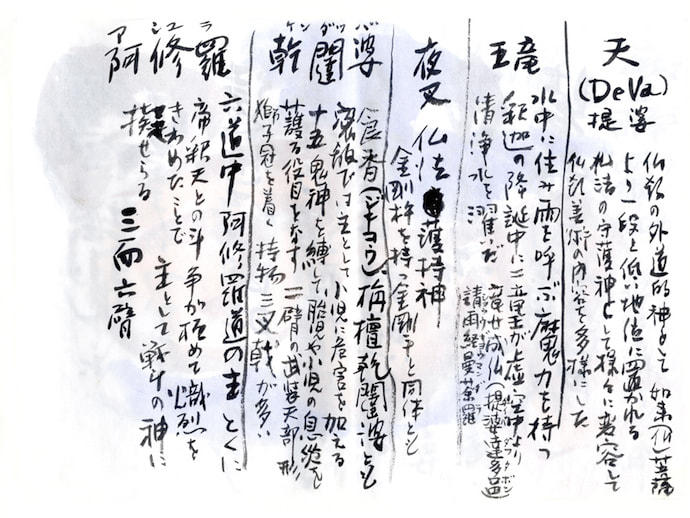 天
(DeVa)
提婆
仏教の外道的神として 如来(仏)菩薩
より一段と低い地位に置かれる
仏法の守護神として様々に変容して
仏教美術の内容を多様にした
竜王
水中に住み雨を呼ぶ魔力を持つ
釈迦の降誕中に二竜王が虚空中より
清浄水を灌いだ
竜女成仏(提婆達多品)
ダイバダッタボン
請雨経曼荼羅
夜叉
仏法護持神
金剛杵を持つ金剛手と同体とも
乾闥婆
ケンダツバ
食香(ジキコウ)栴檀乾闥婆とも
密教では主として小児に危害を加える
十五鬼神を縛して胎児や小児の息災を
護る役目をなす 二臂の武装天部形
獅子冠を着く 持物三叉戟が多い
阿修羅
アシュラ
六道中 阿修羅道の主 とくに
帝釈天との斗争が極めて熾烈を
きわめたことで 主として戦斗の神に
擬せらる 三面六臂